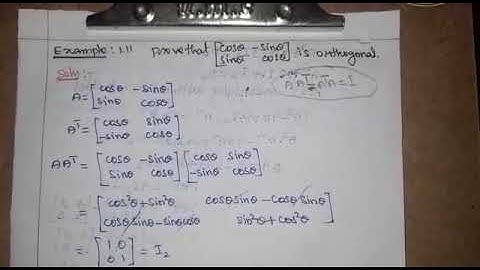 Example: 1.11 Prove that [cosθ -sinθ; sinθ cosθ] is orthogonal.
Soln:-
AAᵀ = AᵀA = I
A = [cosθ -sinθ; sinθ cosθ]
Aᵀ = [cosθ sinθ; -sinθ cosθ]
AAᵀ = [cosθ -sinθ; sinθ cosθ] [cosθ sinθ; -sinθ cosθ]
= [cos²θ+sin²θ cosθsinθ-cosθsinθ; cosθsinθ-sinθcosθ sin²θ+cos²θ]
= [1 0; 0 1] = I₂